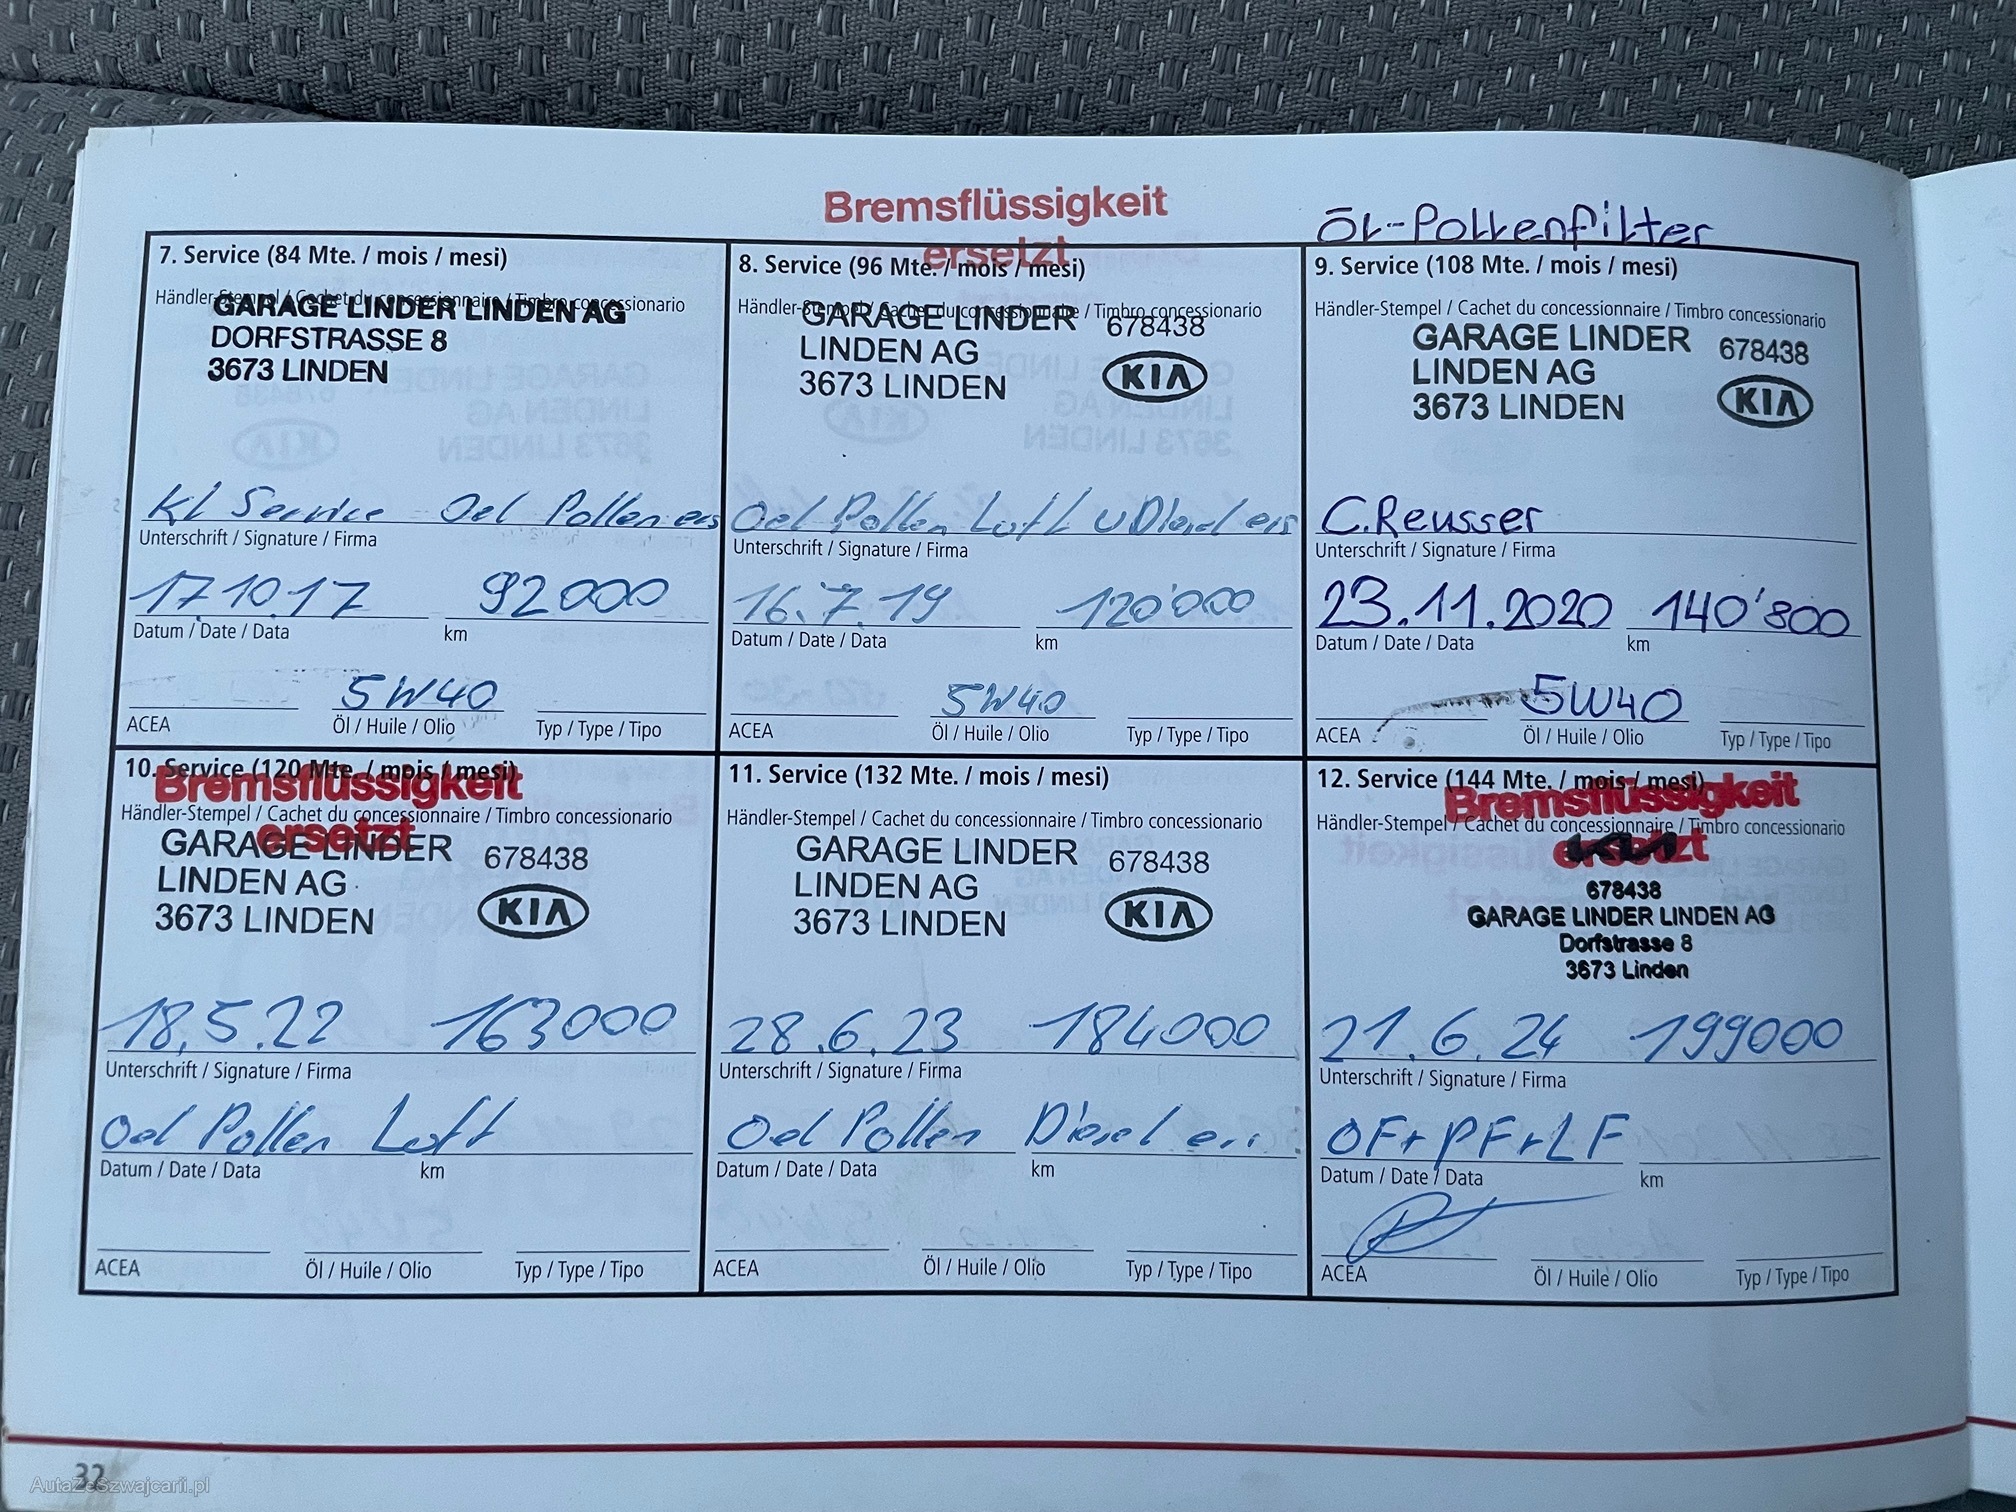 Bremsflüssigkeit
ersetzt
7. Service (84 Mte. / mois / mesi)
Händler-Stempel / Cachet du concessionnaire / Timbro concessionario
GARAGE LINDER LINDEN AG
DORFSTRASSE 8
3673 LINDEN
Kl Service Oel Pollen ers
Unterschrift / Signature / Firma
17.10.17 92000
Datum / Date / Data km
5W40
ACEA Öl / Huile / Olio Typ / Type / Tipo
8. Service (96 Mte. / mois / mesi)
Händler-Stempel / Cachet du concessionnaire / Timbro concessionario
GARAGE LINDER 678438
LINDEN AG
3673 LINDEN KIA
Oel Pollen Luft u Diesel ers
Unterschrift / Signature / Firma
16.7.19 120'000
Datum / Date / Data km
5W40
ACEA Öl / Huile / Olio Typ / Type / Tipo
ÖL-Pollenfilter
9. Service (108 Mte. / mois / mesi)
Händler-Stempel / Cachet du concessionnaire / Timbro concessionario
GARAGE LINDER 678438
LINDEN AG
3673 LINDEN KIA
C.Reusser
Unterschrift / Signature / Firma
23.11.2020 140'800
Datum / Date / Data km
5W40
ACEA Öl / Huile / Olio Typ / Type / Tipo
10. Service (120 Mte. / mois / mesi)
Bremsflüssigkeit
Händler-Stempel / Cachet du concessionnaire / Timbro concessionario
ersetzt
GARAGE LINDER 678438
LINDEN AG
3673 LINDEN KIA
18.5.22 163000
Unterschrift / Signature / Firma
Oel Pollen Luft
Datum / Date / Data km
ACEA Öl / Huile / Olio Typ / Type / Tipo
11. Service (132 Mte. / mois / mesi)
Händler-Stempel / Cachet du concessionnaire / Timbro concessionario
GARAGE LINDER 678438
LINDEN AG
3673 LINDEN KIA
28.6.23 184000
Unterschrift / Signature / Firma
Oel Pollen Diesel
Datum / Date / Data km
ACEA Öl / Huile / Olio Typ / Type / Tipo
12. Service (144 Mte. / mois / mesi)
Bremsflüssigkeit
Händler-Stempel / Cachet du concessionnaire / Timbro concessionario
ersetzt
678438
GARAGE LINDER LINDEN AG
Dorfstrasse 8
3673 Linden
21.6.24 199000
Unterschrift / Signature / Firma
OF+PF+LF
Datum / Date / Data km
ACEA Öl / Huile / Olio Typ / Type / Tipo
32
AutaZeSzwajcarii.pl